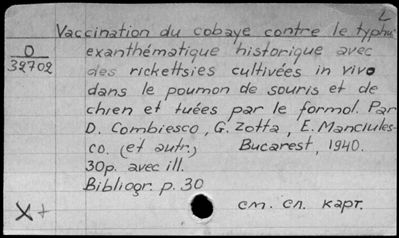 L
Vaccination du cobaye contre le typhus
O
39702
exanthématique historique avec
des rickettsies cultivées in vivo
dans le poumon de souris et de
chien et tuées par le formol. Par
D. Combiesco, G. Zotta, E. Manciules-
co. (et autr.) Bucarest, 1940.
30p. avec ill.
Bibliogr. p. 30
X +
см. сл. карт.